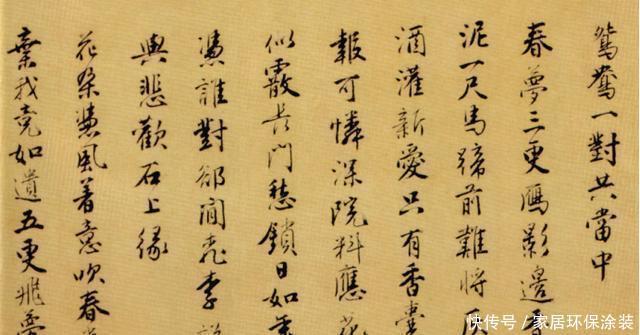 鴛鴦一對共當中
春夢三更鴈影邊
泥一尺馬蹄前難將
酒灌新愛只有香囊
報可憐深院料應花
似霰長門愁鎖日如
憑誰對卻閒桃李說
與悲歡石上緣
花朵憑風着意吹春
棄我竟如遺五更飛夢
快传号/家居环保涂装